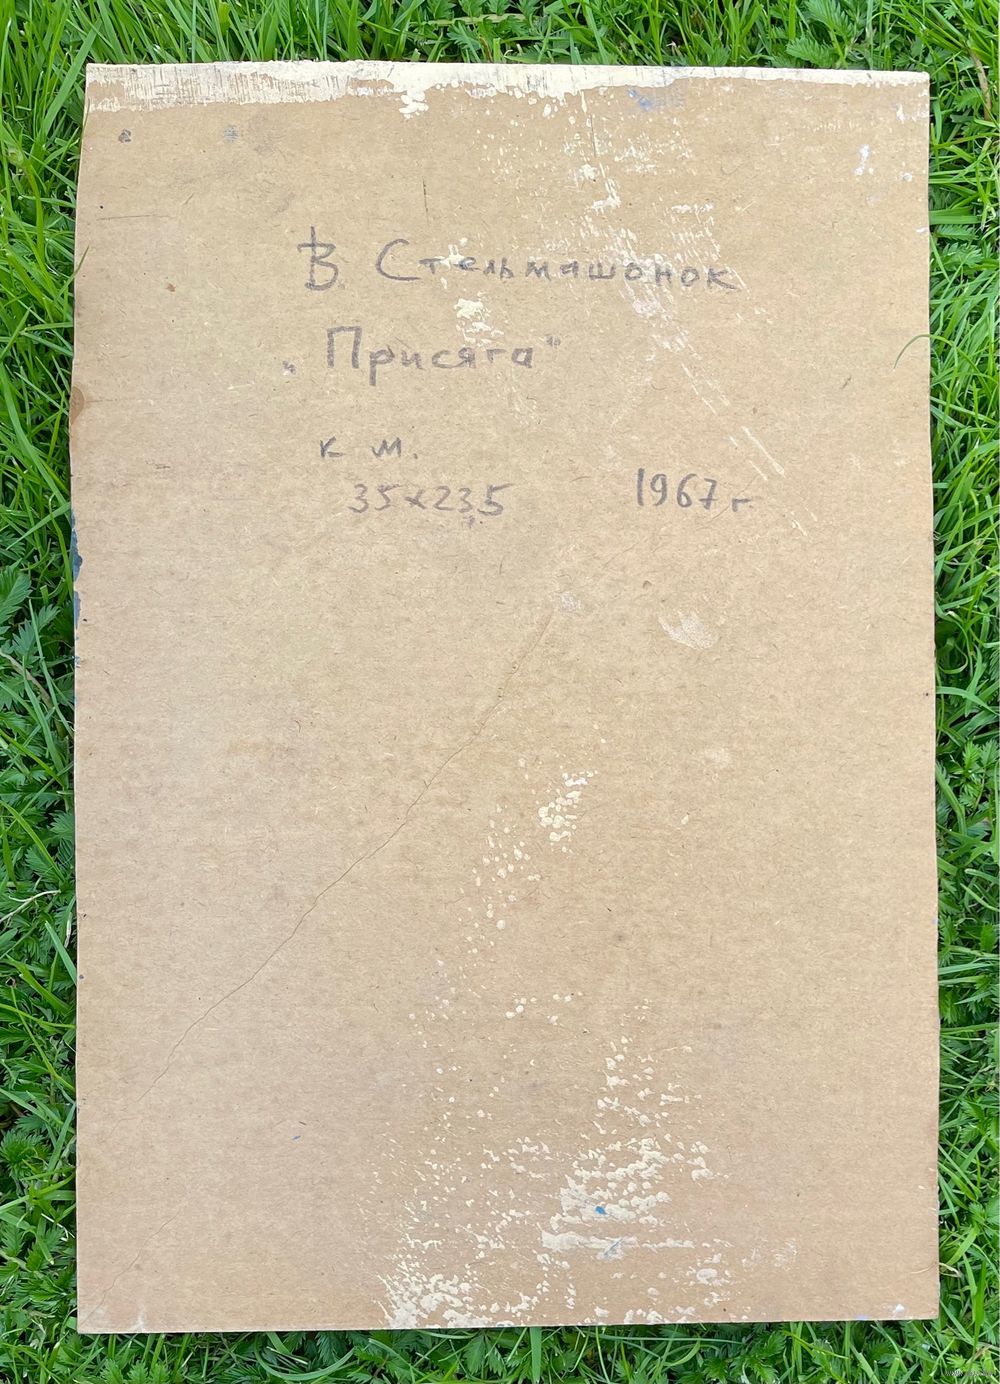 В. Стельмашонок
„Присяга"
к м.
35х23,5 1967 г.